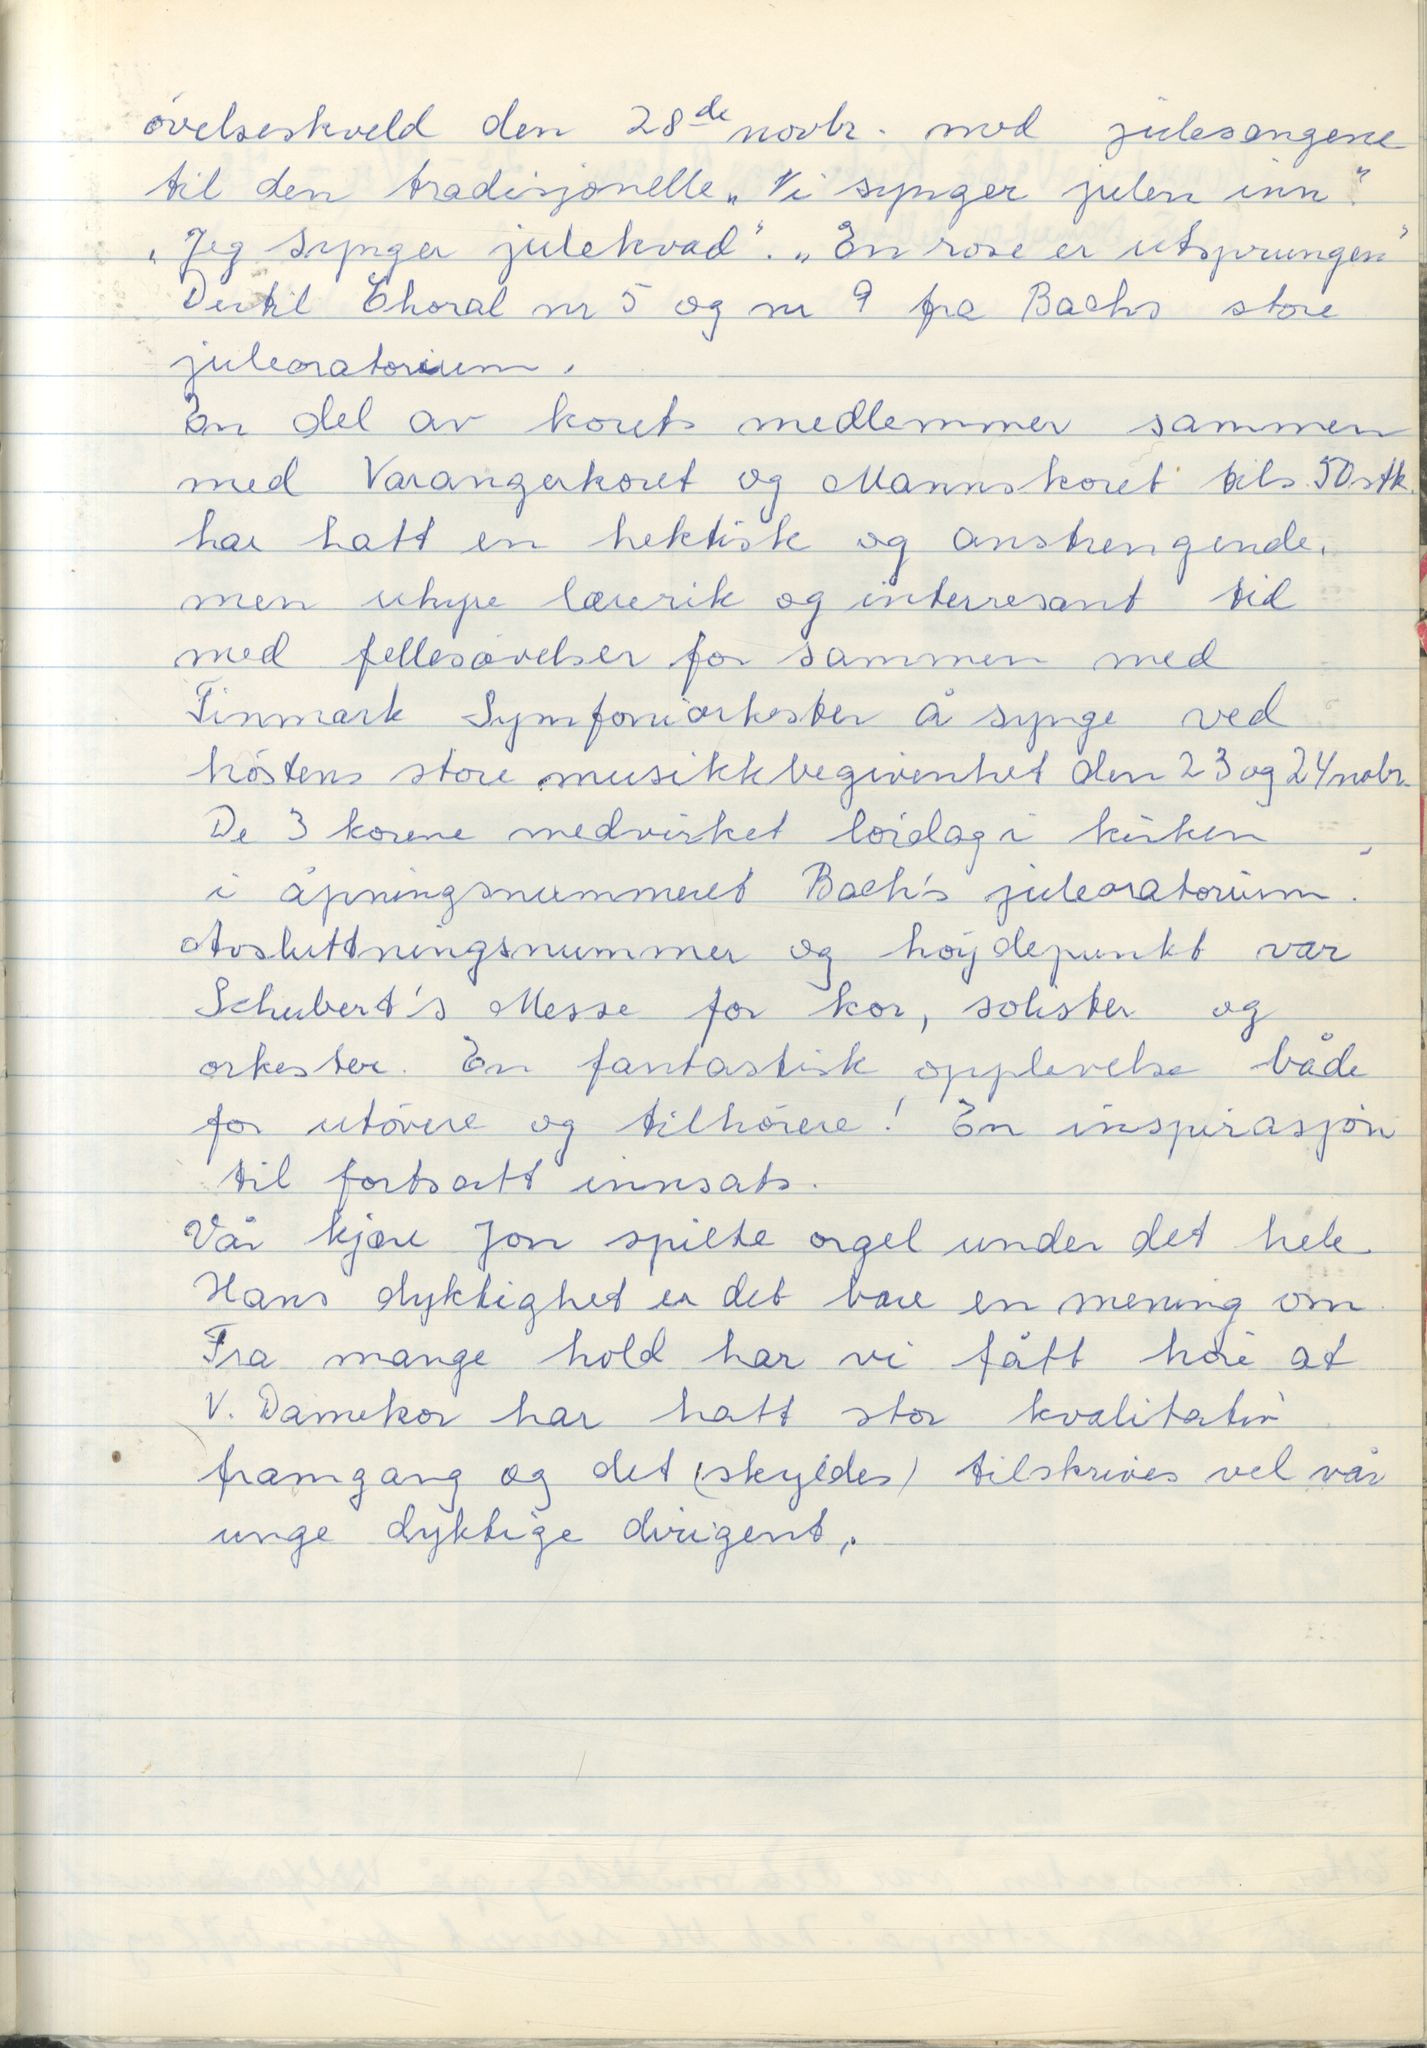 övelseskveld den 28de novbr. med julesangene
til den tradisjonelle „Vi synger julen inn".
„Jeg synger julekvad". „En rose er utsprungen"
Dertil Choral nr 5 og nr 9 fra Bachs store
juleoratorium.
En del av korets medlemmer sammen
med Varangerkoret og Mannskoret tils. 50 stk.
har hatt en hektisk og anstrengende,
men uhyre lærerik og interresant tid
med fellesøvelser for sammen med
Finmark Symfoniorkester å synge ved
høstens store musikkbegivenhet den 23 og 24 nobr.
De 3 korene medvirket lördag i kirken
i åpningsnummeret Bach's juleoratorium.
Avsluttningsnummer og höydepunkt var
Schubert's Messe for kor, solister og
orkester. En fantastisk opplevelse både
for utövere og tilhörere! En inspirasjon
til fortsatt innsats.
Vår kjære Jon spilte orgel under det hele.
Hans dyktighet er det bare en mening om
Fra mange hold har vi fått höre at
V. Damekor har hatt stor kvalitativ
framgang og det (skyldes) tilskrives vel vår
unge dyktige dirigent.